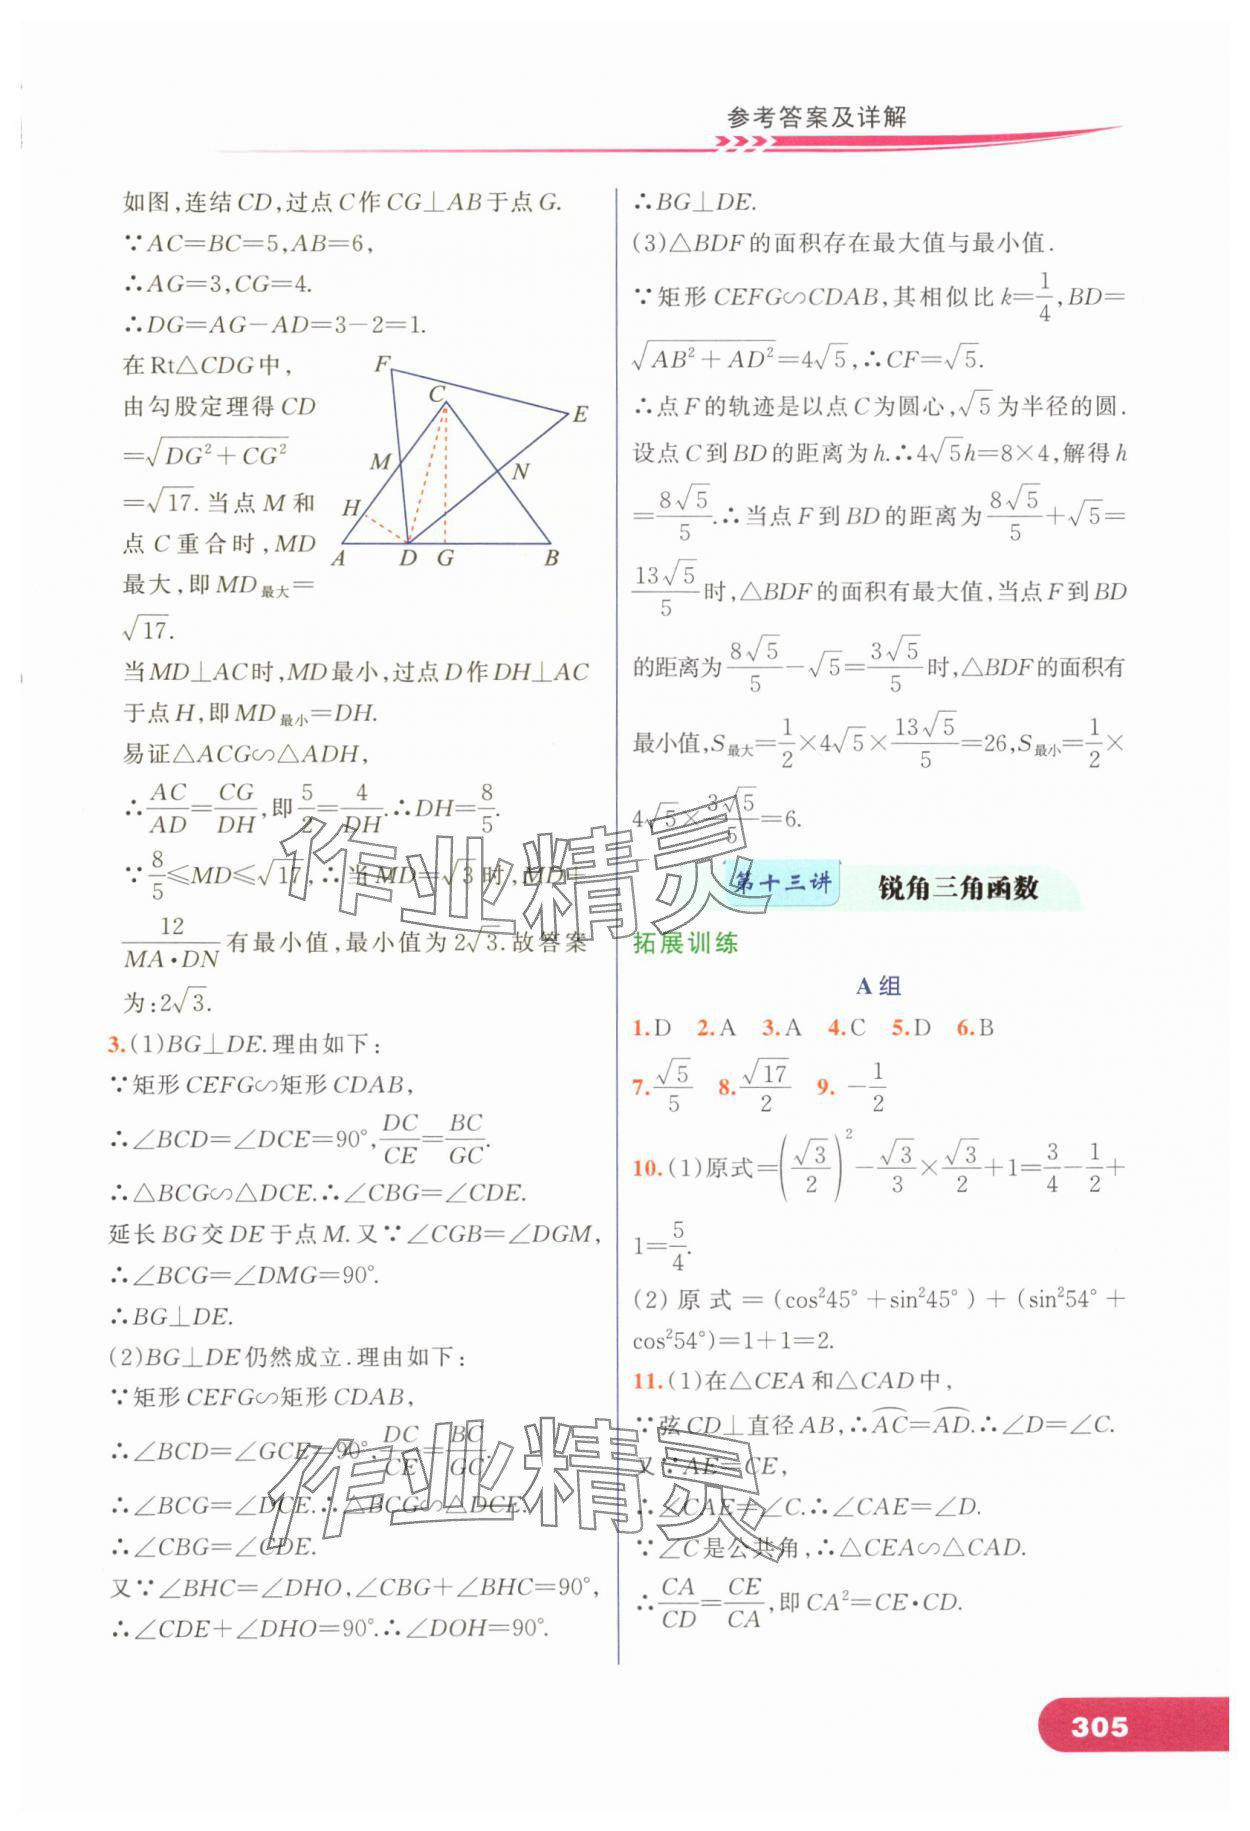 参考答案及详解
如图,连结CD,过点C作CG⊥AB于点G.
∵AC=BC=5,AB=6,
∴AG=3,CG=4.
∴DG=AG-AD=3-2=1.
在Rt△CDG中,
由勾股定理得CD
=√(DG²+CG²)
=√17.当点M和
点C重合时,MD
最大,即MD最大=
√17.
F
C
E
M
N
H
A
D
G
B
当MD⊥AC时,MD最小,过点D作DH⊥AC
于点H,即MD最小=DH.
易证△ACG∽△ADH,
∴AC/AD=CG/DH,即5/2=4/DH.∴DH=8/5.
∵8/5≤MD≤√17,∴当MD=√3时,MD=
12/(MA·DN)有最小值,最小值为2√3.故答案
为:2√3.
3.(1)BG⊥DE.理由如下:
∵矩形CEFG∽矩形CDAB,
∴∠BCD=∠DCE=90°,DC/CE=BC/GC.
∴△BCG∽△DCE.∴∠CBG=∠CDE.
延长BG交DE于点M.又∵∠CGB=∠DGM,
∴∠BCG=∠DMG=90°.
∴BG⊥DE.
(2)BG⊥DE仍然成立.理由如下:
∵矩形CEFG∽矩形CDAB,
∴∠BCD=∠GCE=90°,DC/CE=BC/GC.
∴∠BCG=∠DCE.∴△BCG∽△DCE.
∴∠CBG=∠CDE.
又∵∠BHC=∠DHO,∠CBG+∠BHC=90°,
∴∠CDE+∠DHO=90°.∴∠DOH=90°.
∴BG⊥DE.
(3)△BDF的面积存在最大值与最小值.
∵矩形CEFG∽CDAB,其相似比k=1/4,BD=
√(AB²+AD²)=4√5,∴CF=√5.
∴点F的轨迹是以点C为圆心,√5为半径的圆.
设点C到BD的距离为h.∴4√5h=8×4,解得h
=8√5/5.∴当点F到BD的距离为8√5/5+√5=
13√5/5时,△BDF的面积有最大值,当点F到BD
的距离为8√5/5-√5=3√5/5时,△BDF的面积有
最小值,S最大=1/2×4√5×13√5/5=26,S最小=1/2×
4√5×3√5/5=6.
第十三讲 锐角三角函数
拓展训练
A组
1.D 2.A 3.A 4.C 5.D 6.B
7.√5/5 8.√17/2 9.-1/2
10.(1)原式=(√3/2)²-√3/3×√3/2+1=3/4-1/2+
1=5/4.
(2)原式=(cos²45°+sin²45°)+(sin²54°+
cos²54°)=1+1=2.
11.(1)在△CEA和△CAD中,
∵弦CD⊥直径AB,∴AC=AD.∴∠D=∠C.
又∵AE=CE,
∴∠CAE=∠C.∴∠CAE=∠D.
∵∠C是公共角,∴△CEA∽△CAD.
∴CA/CD=CE/CA,即CA²=CE·CD.
作业精灵
作业精灵
305